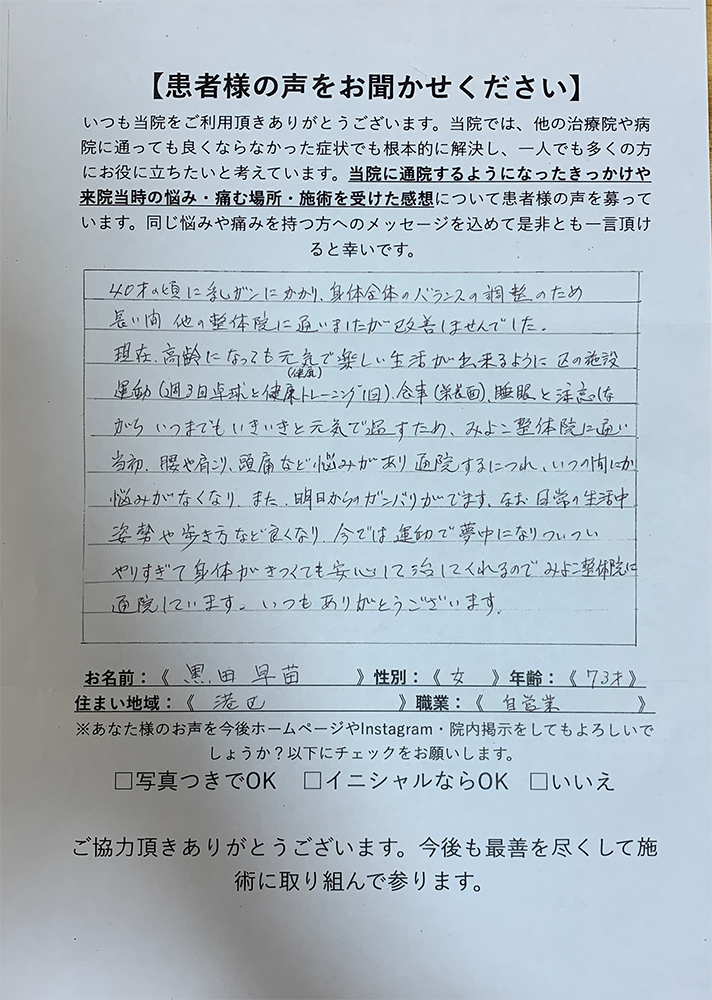 【患者様の声をお聞かせください】
いつも当院をご利用頂きありがとうございます。当院では、他の治療院や病
院に通っても良くならなかった症状でも根本的に解決し、一人でも多くの方
にお役に立ちたいと考えています。当院に通院するようになったきっかけや
来院当時の悩み・痛む場所・施術を受けた感想について患者様の声を募って
います。同じ悩みや痛みを持つ方へのメッセージを込めて是非とも一言頂け
ると幸いです。
40才の頃に乳ガンにかかり、身体全体のバランスの調整のため
長い間 他の整体院に通いましたが改善しませんでした.
現在、高齢になっても元気で楽しい生活が出来るように 区の施設
(健康)
運動(週3回卓球と健康トレーニング1回)、食事(栄養面)、睡眠と注意しな
がら いつまでもいきいきと元気で過すため、みよこ整体院に通い
当初、腰や肩こり、頭痛など悩みがあり 通院するにつれ、いつの間にか
悩みがなくなり、また、明日からのガンバリがでます、なお 日常の生活中
姿勢や歩き方など良くなり、今では運動で夢中になり ついつい
やりすぎて身体がきつくても安心して治してくれるので みよこ整体院に
通院しています。いつもありがとうございます.
お名前：《 黒田 早苗 》性別：《 女 》年齢：《 73才 》
住まい地域：《 港区 》職業：《 自営業 》
※あなた様のお声を今後ホームページやInstagram・院内掲示をしてもよろしいで
しょうか？以下にチェックをお願いします。
□写真つきでOK □イニシャルならOK □いいえ
ご協力頂きありがとうございます。今後も最善を尽くして施
術に取り組んで参ります。